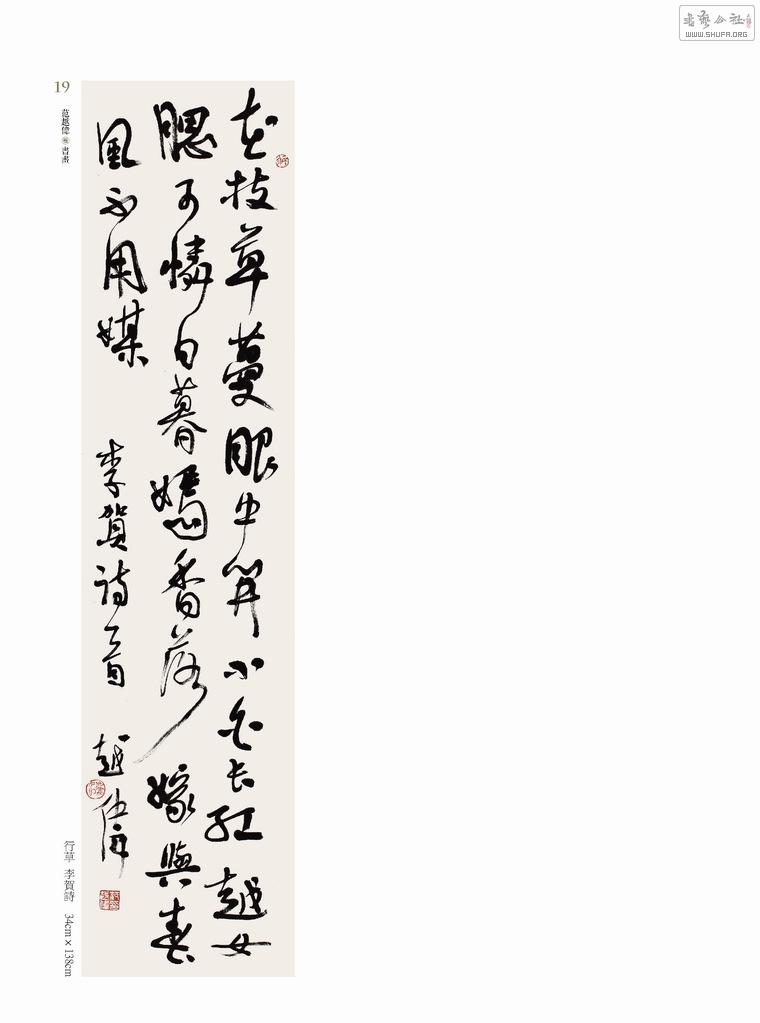 書藝公社
WWW.SHUFA.ORG
19
范越偉 書畫
花枝草蔓眼中開小白長紅越女
腮可憐日暮嫣香落嫁與春
風不用媒 李賀詩一首 越偉
行草 李賀詩 34cm×138cm